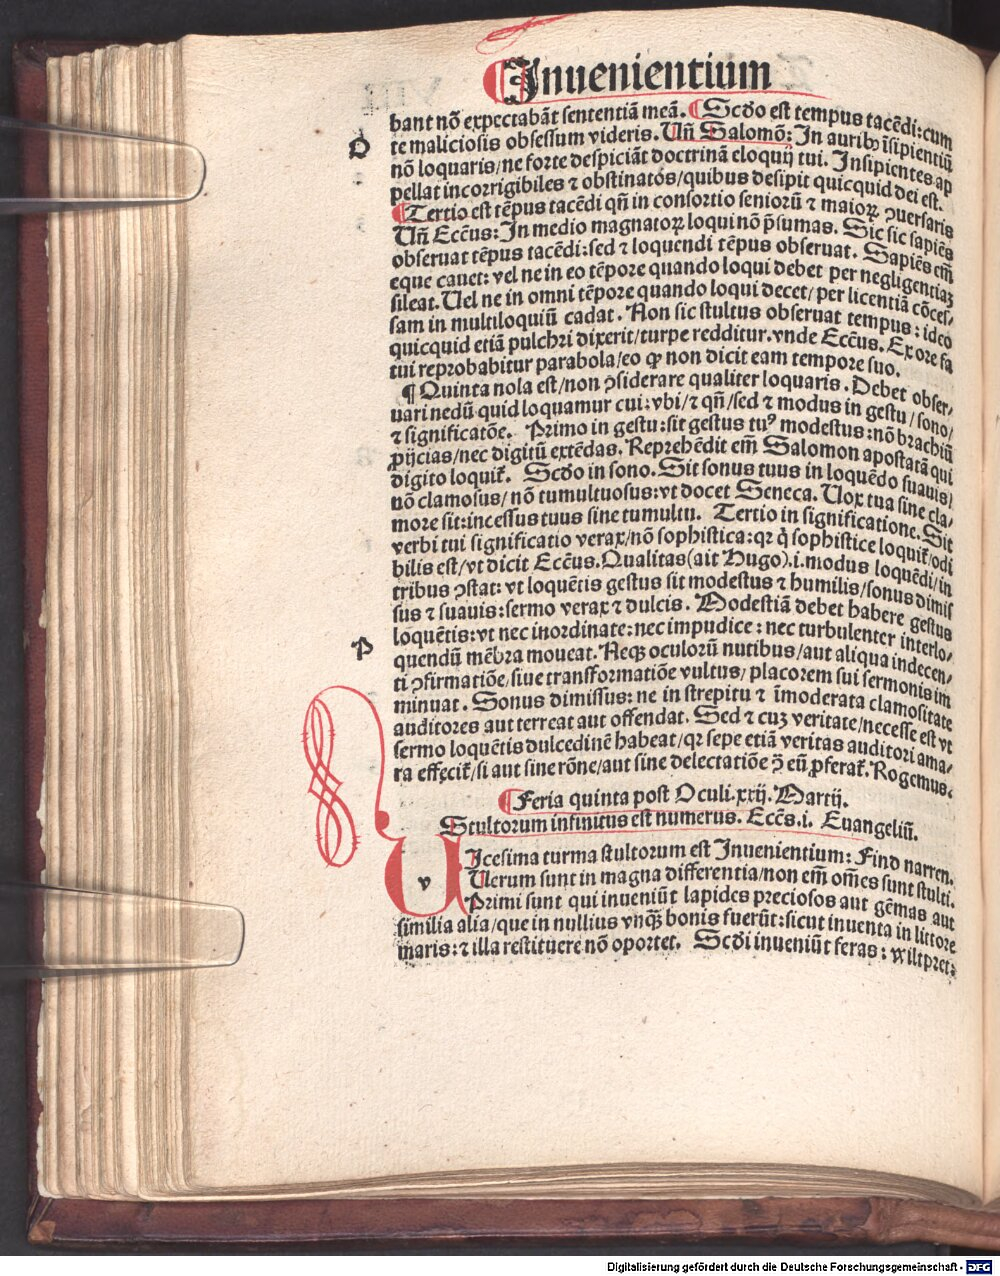 Inuenientium
bant nō expectabāt sententiā meā. Scd̄o est tempus tacēdi: cum
O
te maliciosis obsessum videris. Vn̄ Salomō: In auribꝰ īsipientiū
nō loquaris/ne forte despiciāt doctrinā eloquij tui. Insipientes ap
pellat incorrigibiles ⁊ obstinatos/quibus desipit quicquid dei est.
Tertio est tēpus tacēdi qn̄ in consortio seniorū ⁊ maioꝝ ꝯuersaris
Vn̄ Ecc̄us: In medio magnatoꝝ loqui nō p̄sumas. Sic sic sapiēs
obseruat tēpus tacēdi: sed ⁊ loquendi tēpus obseruat. Sapiēs em̄
eque cauet: vel ne in eo tēpore quando loqui debet per negligentiaꝫ
sileat. Uel ne in omni tēpore quando loqui decet/per licentiā cōces/
sam in multiloquiū cadat. Non sic stultus obseruat tempus: ideo
quicquid etiā pulchri dixerit/turpe redditur. vnde Ecc̄us. Ex ore fa
tui reprobabitur parabola/eo ꝙ non dicit eam tempore suo.
¶ Quinta nola est/non ꝯsiderare qualiter loquaris. Debet obser/
uari nedū quid loquamur cui: vbi/⁊ qn̄/sed ⁊ modus in gestu/sono/
⁊ significatōe. Primo in gestu: sit gestus tuꝰ modestus: nō brachiū
ꝓijcias/nec digitū extēdas. Reprehēdit em̄ Salomon apostatā qui
digito loquit̄. Scd̄o in sono. Sit sonus tuus in loquēdo suauis/
nō clamosus/nō tumultuosus: vt docet Seneca. Uox tua sine cla/
more sit: incessus tuus sine tumultu. Tertio in significatione. Sit
verbi tui significatio verax/nō sophistica: qꝛ q̇ sophistice loquit̄/odi
bilis est/vt dicit Ecc̄us. Qualitas (ait Hugo) .i. modus loquēdi/in
tribus ꝯstat: vt loquētis gestus sit modestus ⁊ humilis/sonus dimis
sus ⁊ suauis: sermo verax ⁊ dulcis. Modestiā debet habere gestus
loquētis: vt nec inordinate: nec impudice: nec turbulenter interlo/
P
quendū mēbra moueat. Neqꝫ oculorū nutibus/aut aliqua indecen/
ti ꝯfirmatiōe/siue transformatiōe vultus/placorem sui sermonis im
minuat. Sonus dimissus: ne in strepitu ⁊ īmoderata clamositate
auditores aut terreat aut offendat. Sed ⁊ cuꝫ veritate/necesse est vt
sermo loquētis dulcedinē habeat/qꝛ sepe etiā veritas auditori ama/
ra effęcit̄/si aut sine rōne/aut sine delectatiōe ꝑ eū ꝓferat̄. Rogemus.
Feria quinta post Oculi. xxij. Martij.
Stultorum infinitus est numerus. Ecc̄s. i. Euangeliū.
v
Icesima turma stultorum est Inuenientium: Find narren.
Uerum sunt in magna differentia/non em̄ om̄es sunt stulti.
Primi sunt qui inueniūt lapides preciosos aut gēmas aut
similia alia/que in nullius vnqꝫ bonis fuerūt: sicut inuenta in littore
maris: ⁊ illa restituere nō oportet. Scd̄i inueniūt feras: wiltpret:
Digitalisierung gefördert durch die Deutsche Forschungsgemeinschaft - DFG